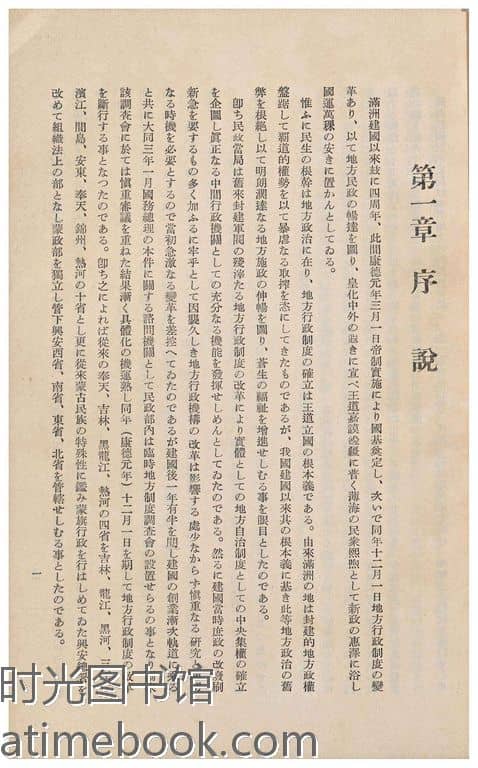 第一章 序 說
滿洲建國以來玆に四周年、此間康德元年三月一日帝制實施により國基奠定し、次いで同年十二月一日地方行政制度の變
革あり、以て地方民政の暢達を圖り、皇化中外の
に宣べ王道嘉謨
に普く薄海の民衆熙熙として新政の惠澤に浴し
國運萬
の安きに置かんとしてゐる。
惟ふに民生の根幹は地方政治に在り、地方行政制度の確立は王道立國の根本義である。由來滿洲の地は封建的地方政權
盤踞して覇道的權勢を以て暴虐なる取搾を恣にしてきたものであるが、我國建國以來其の根本義に基き此等地方政治の舊
弊を根絶し以て明朗濶達なる地方施政の伸暢を圖り、蒼生の福祉を增進せしむる事を眼目としたのである。
卽ち民政當局は舊來封建軍閥の殘滓たる地方行政制度の改革により實體としての地方自治制度としての中央集權の確立
を企圖し眞正なる中間行政機關としての充分なる機能を發揮せしめんとしてゐたのである。然るに建國當時庶政の改廢刷
新急を要するもの多く加ふるに牢乎として因襲久しき地方行政機構の改革は影響する處少なからず愼重なる研究と
なる時機を必要とするので當初急激なる變革を差控へてゐたのであるが建國後一年有半を閲し建國の創業漸次軌道に
る
と共に大同三年一月國務總理の本件に關する諮問機關として民政部內は臨時地方制度調査會の設置せらるの事となり
該調査會に於ては愼重審議を重ねた結果漸く具體化の機運熟し同年(康德元年)十二月一日を期して地方行政制度の改
を斷行する事となつたのである。卽ち之によれば從來の奉天、吉林、黑龍江、熱河の四省を吉林、龍江、黑河、三
濱江、間島、安東、奉天、錦州、熱河の十省とし更に從來蒙古民族の特殊性に鑑み蒙旗行政を行はしめてゐた興安總署を
改めて組織法上の部となし蒙政部を獨立し管下興安西省、南省、東省、北省を管轄せしむる事としたのである。
一
时光图书馆
atimebook.com